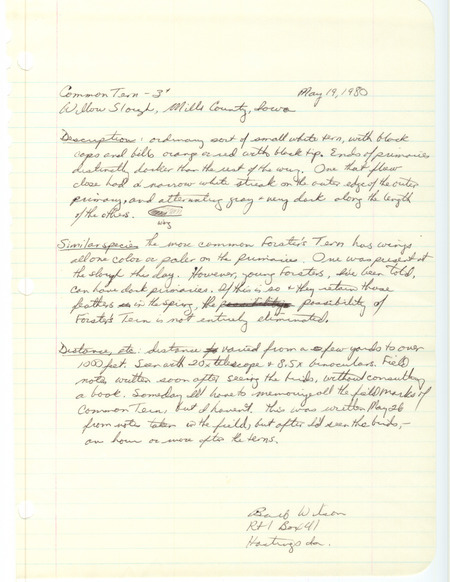 Common Tern - 3* May 19, 1980
Willow Slough, Mills County, Iowa
Description: ordinary sort of small white tern, with black
caps and bills orange or red with black tip. Ends of primaries
distinctly darker than the rest of the wing. One that flew
close had a narrow white streak on the outer edge of the outer
primary, and alternating gray + very dark along the length
of the others.
wing
Similar species the more common Forster's Tern has wings
all one color or paler on the primaries. One was present at
the slough this day. However, young Forsters, I've been told,
can have dark primaries. If this is so & they retain those
feathers in the spring, the possibility of
Forster's Tern is not entirely eliminated.
Distance, etc: distance varied from a few yards to over
1000 feet. Seen with 20x telescope & 8.5x binoculars. Field
notes written soon after seeing the birds, without consulting
a book. Someday I'll have to memorize all the field marks of
Common Tern, but I haven't. This was written May 26
from notes taken in the field, but after I'd seen the birds,-
an hour or more after the terns.
Barb Wilson
Rt 1 Box 41
Hastings Ia.